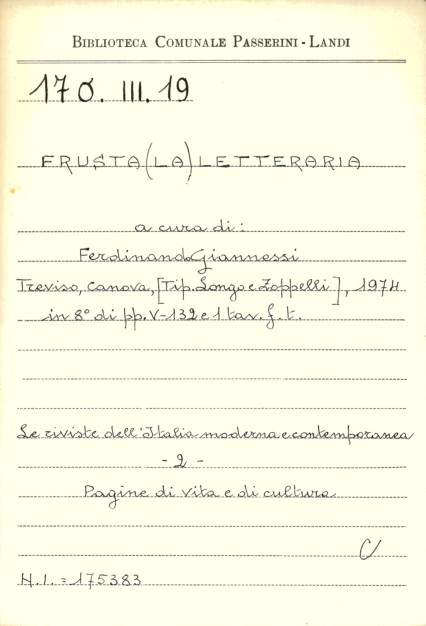 BIBLIOTECA COMUNALE PASSERINI - LANDI
170. III. 19
FRUSTA (LA) LETTERARIA
a cura di:
Ferdinando Giannessi
Treviso, Canova, [Tip. Longo e Zoppelli], 1974
in 8° di pp. V-132 e 1 tav. f. t.
Le riviste dell'Italia moderna e contemporanea
- 2 -
Pagine di vita e di cultura
C/
N.I. = 175383